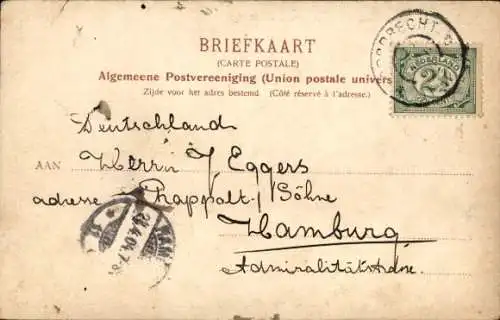 BRIEFKAART
(CARTE POSTALE)
Algemeene Postvereeniging (Union postale univers
Zijde voor het adres bestemd. (Côté réservé à l'adresse.)
DORDRECHT
NEDERLAND
2½
Deutschland
AAN Herrn J Eggers
adresse Rappolt & Söhne
Hamburg
Admiralitätstrasse
HAMB
21.4.04.7-8